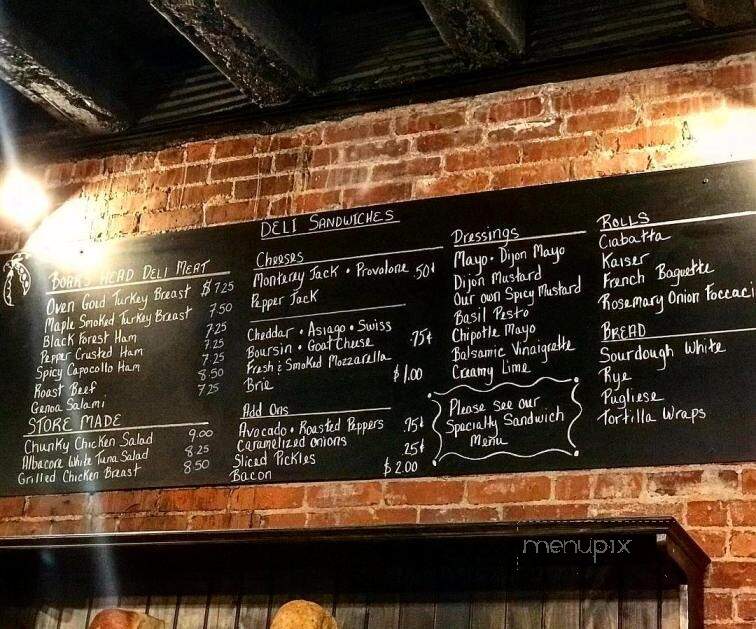 DELI SANDWICHES
BOAR'S HEAD DELI MEAT
Oven Gold Turkey Breast $7.25
Maple Smoked Turkey Breast 7.50
Black Forest Ham 7.25
Pepper Crusted Ham 7.25
Spicy Capocollo Ham 7.25
Roast Beef 8.50
Genoa Salami 7.25
STORE MADE
Chunky Chicken Salad 9.00
Albacore White Tuna Salad 8.25
Grilled Chicken Breast 8.50
Cheeses
Monterey Jack • Provolone 50¢
Pepper Jack
Cheddar • Asiago • Swiss
Boursin • Goat Cheese 75¢
Fresh & Smoked Mozzarella
Brie $1.00
Add Ons
Avocado • Roasted Peppers 95¢
Caramelized onions
Sliced Pickles 25¢
Bacon $2.00
Dressings
Mayo • Dijon Mayo
Dijon Mustard
Our own Spicy Mustard
Basil Pesto
Chipotle Mayo
Balsamic Vinaigrette
Creamy Lime
Please see our
Specialty Sandwich
Menu
ROLLS
Ciabatta
Kaiser
French Baguette
Rosemary Onion Foccaci
BREAD
Sourdough White
Rye
Pugliese
Tortilla Wraps
menupix